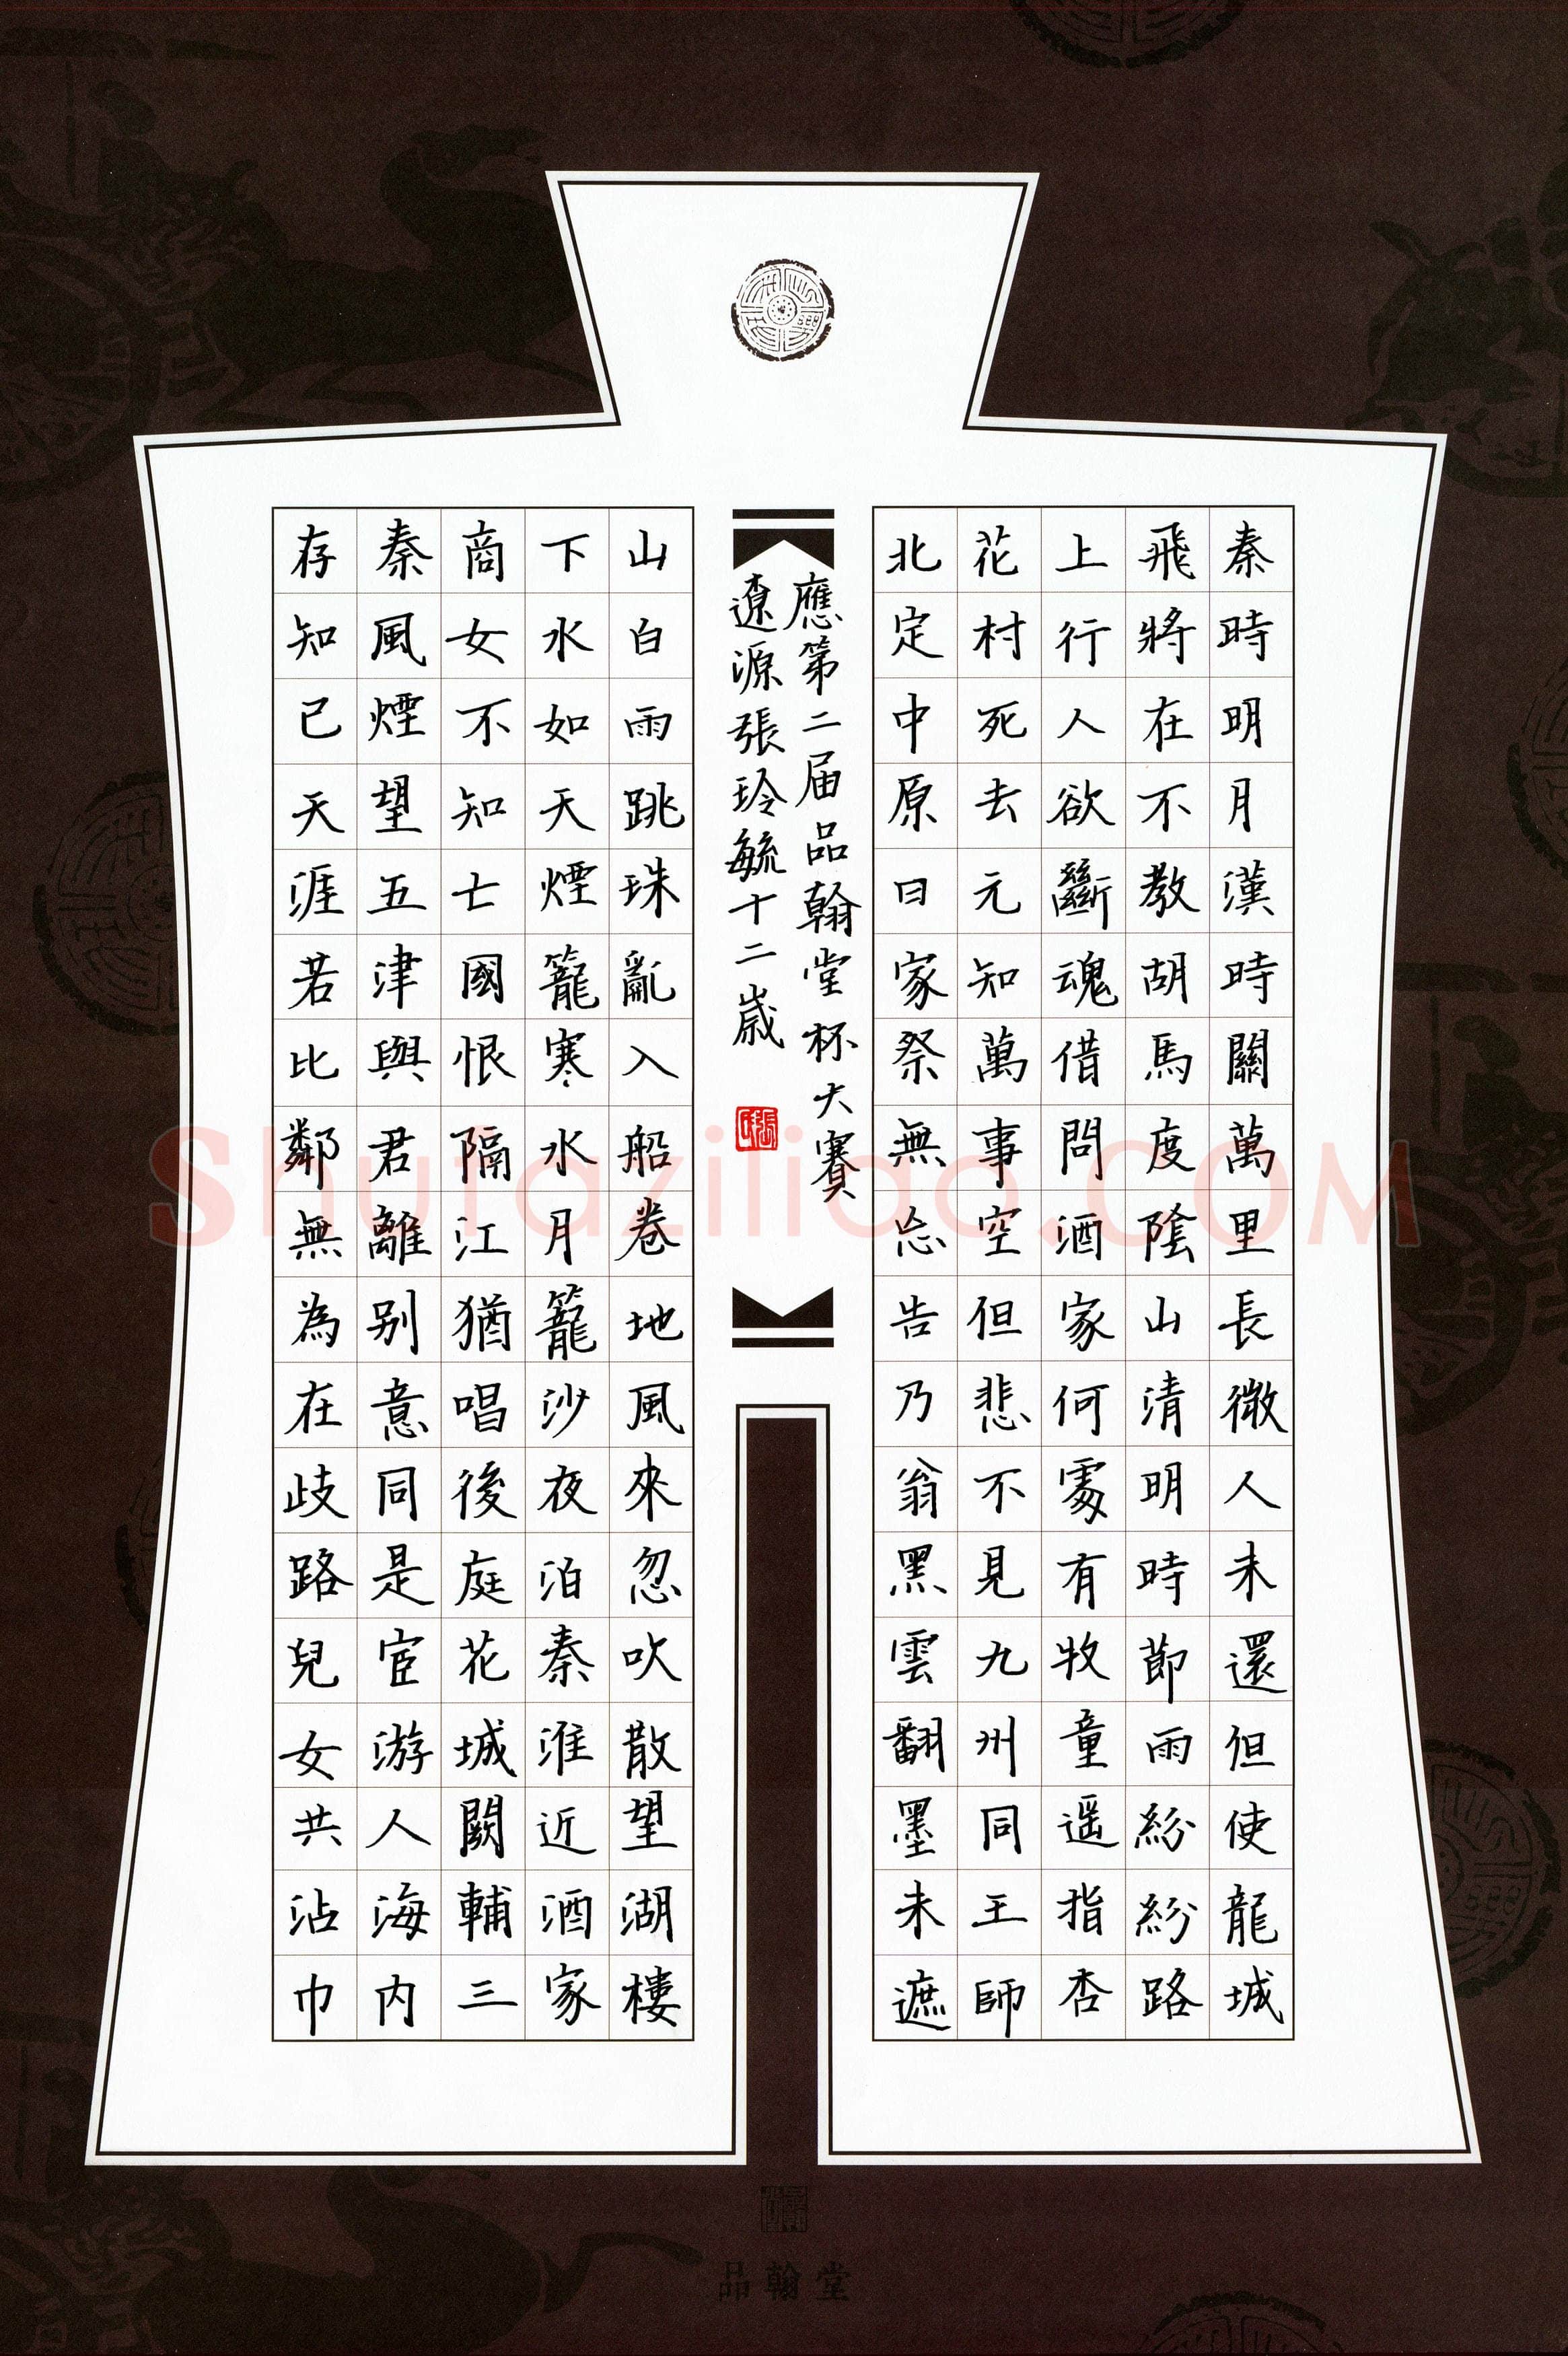 秦時明月漢時關萬里長徵人未還但使龍城
飛將在不教胡馬度陰山清明時節雨紛紛路
上行人欲斷魂借問酒家何處有牧童遥指杏
花村死去元知萬事空但悲不見九州同王師
北定中原日家祭無忘告乃翁黑雲翻墨未遮
山白雨跳珠亂入船卷地風來忽吹散望湖樓
下水如天煙籠寒水月籠沙夜泊秦淮近酒家
商女不知亡國恨隔江猶唱後庭花城闕輔三
秦風煙望五津與君離别意同是宦游人海内
存知己天涯若比鄰無為在歧路兒女共沾巾
應第二届品翰堂杯大賽
遼源張玲毓十二歲
品翰堂
Shufaziliao.COM